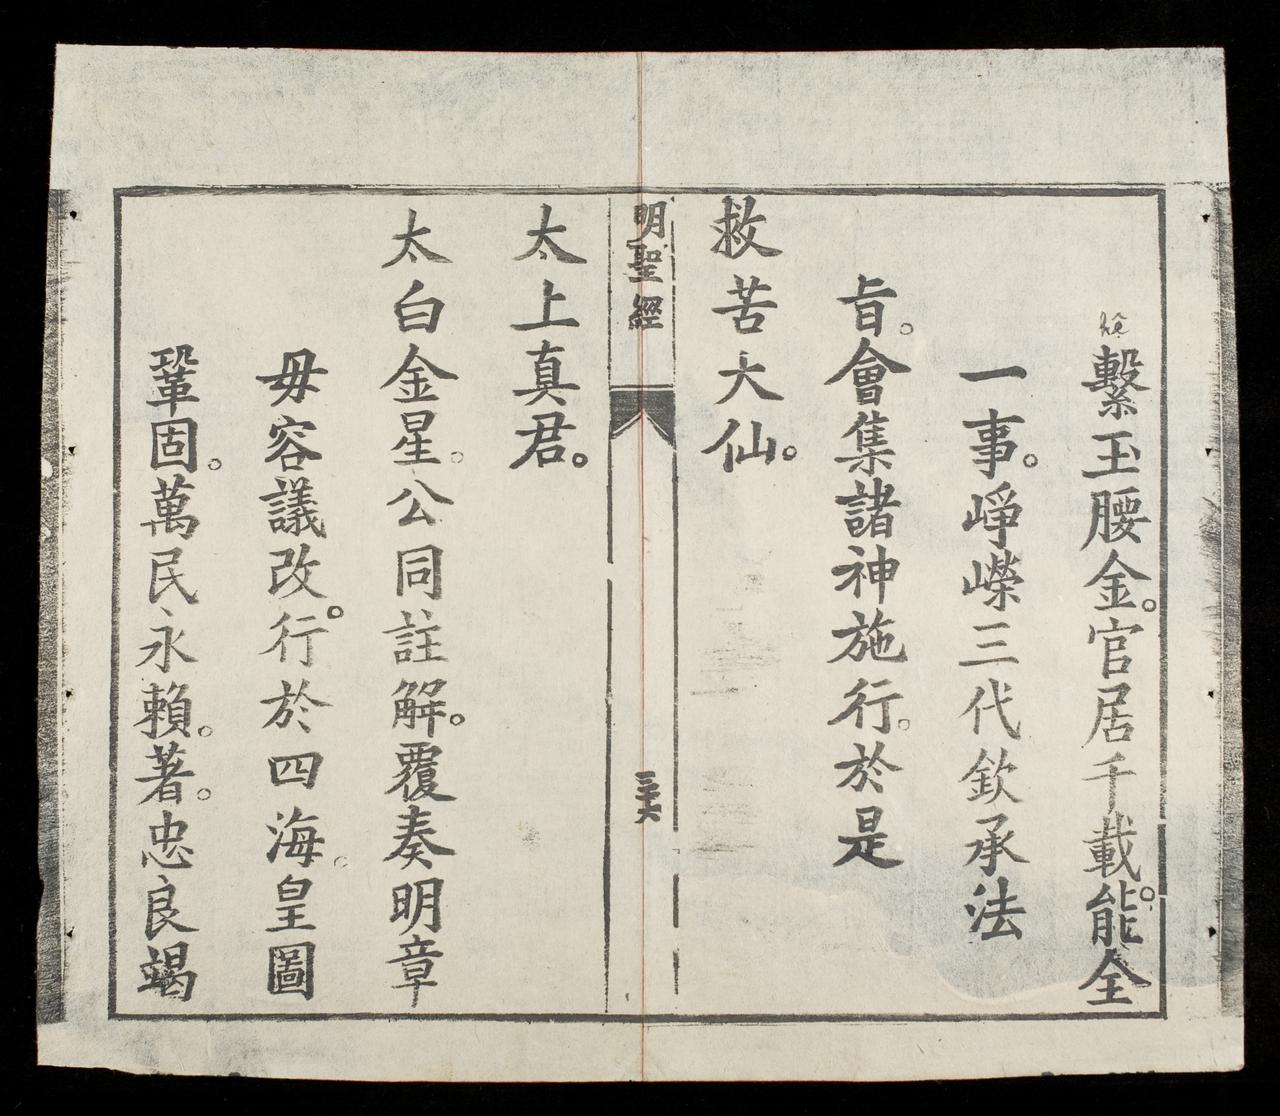 hệ
繫玉腰金。官居千載。能全
一事。崢嶸三代欽承法
旨。會集諸神施行。於是
救苦大仙。
明聖經
三十六
太上真君。
太白金星。公同註解。覆奏明章
毋容議改。行於四海。皇圖
鞏固。萬民永賴。著。忠良竭